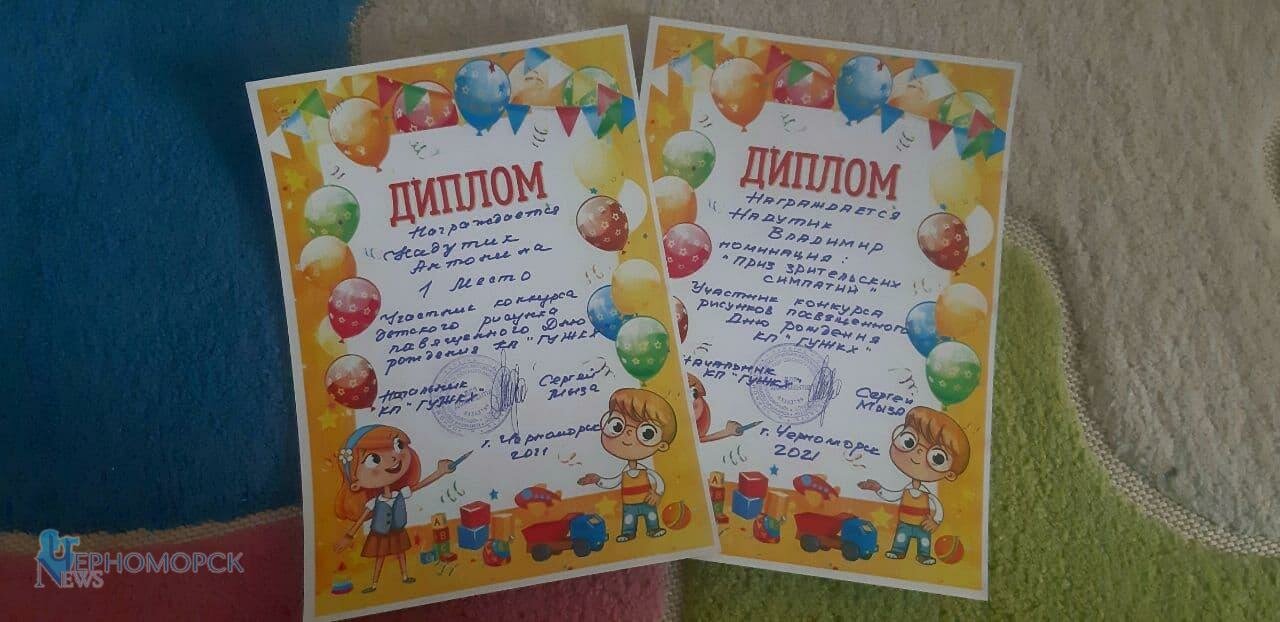 ДИПЛОМ
Награждается
Надутик
Антонина
1 место
Участник конкурса
детского рисунка
посвященного Дню
рождения КП "ГУЖКХ"
Начальник
КП "ГУЖКХ"
Сергей
Мыза
г. Черноморск
2021
ДИПЛОМ
Награждается
Надутик
Владимир
номинация:
"Приз зрительских
симпатий"
Участник конкурса
рисунков посвященного
Дню рождения
КП "ГУЖКХ"
Начальник
КП "ГУЖКХ"
Сергей
Мыза
г. Черноморск
2021
ЧЕРНОМОРСК
NEWS